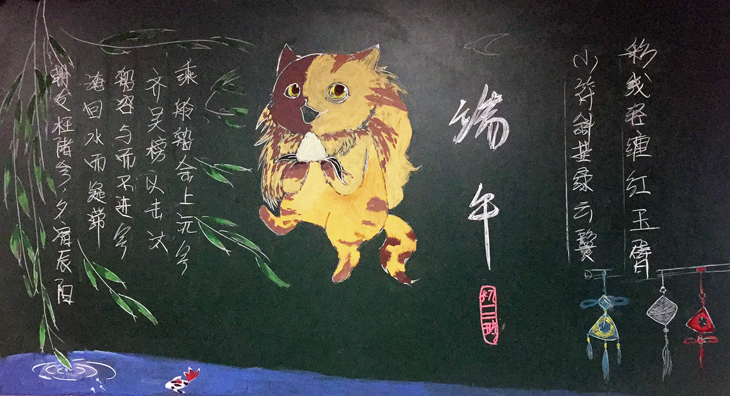 彩线轻缠红玉臂
小符斜挂绿云鬟
端午
乘舲船余上沅兮
齐吴榜以击汰
船容与而不进兮
淹回水而凝滞
朝发枉陼兮,夕宿辰阳